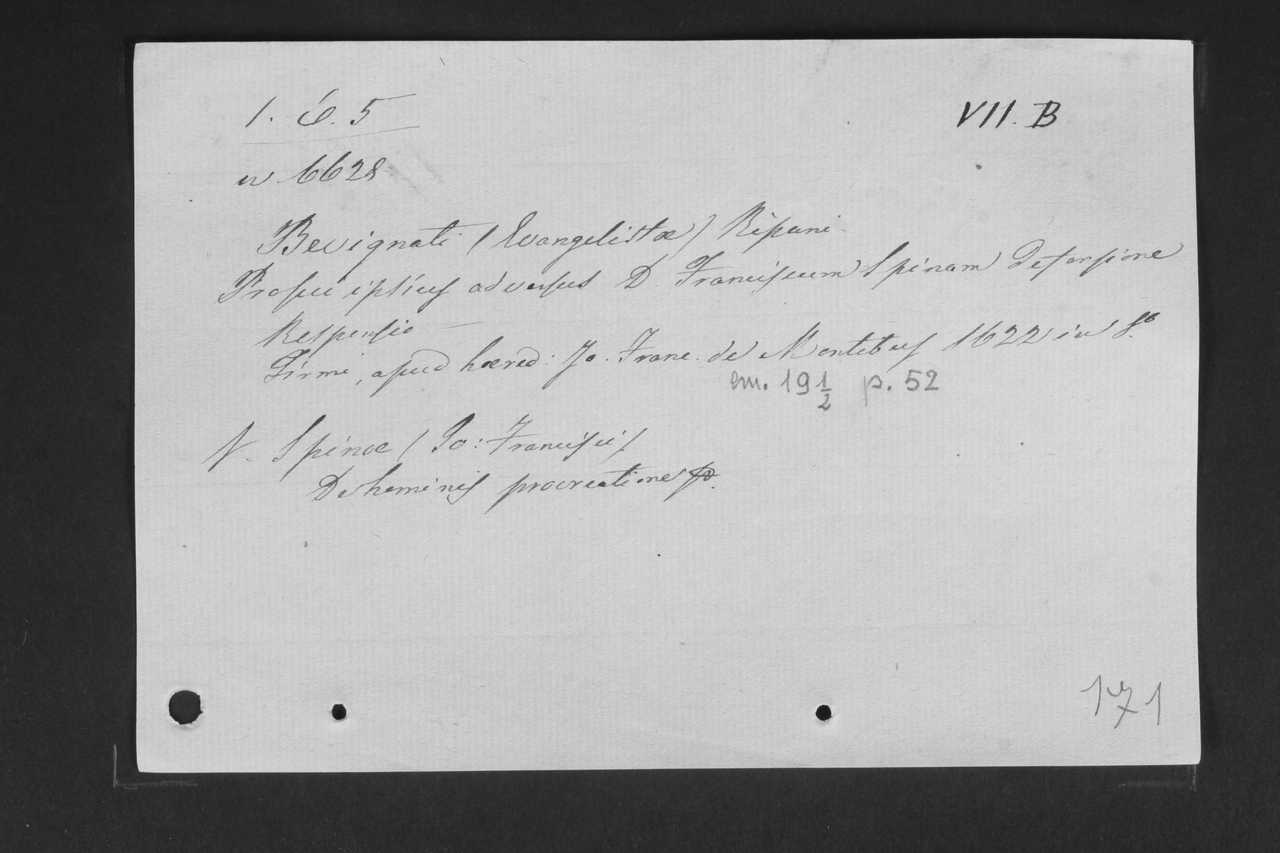 1. 6. 5
VII. B
n 6628
Bevignati (Evangelistæ) Ripani.
Pro se ipsius adversus D. Franciscum Spinam defensione
Responsio
Firmi, apud hœred: Jo. Franc. de Montibus 1622 in 8º
em. 19 1/2 p. 52
V. Spinæ (Jo: Francisci)
De hominis procreatione
171